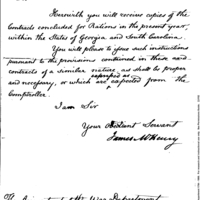 Herewith you will receive copies of the
Contracts concluded for Rations in the present year,
within the States of Georgia and South Carolina.
You will please to give such instructions
pursuant to the provisions contained in these and
contracts of a similar nature as shall be proper
and necessary, or which are expected from the
Comptroller.
I am Sir
Your Obedient Servant
James McHenry
War Department